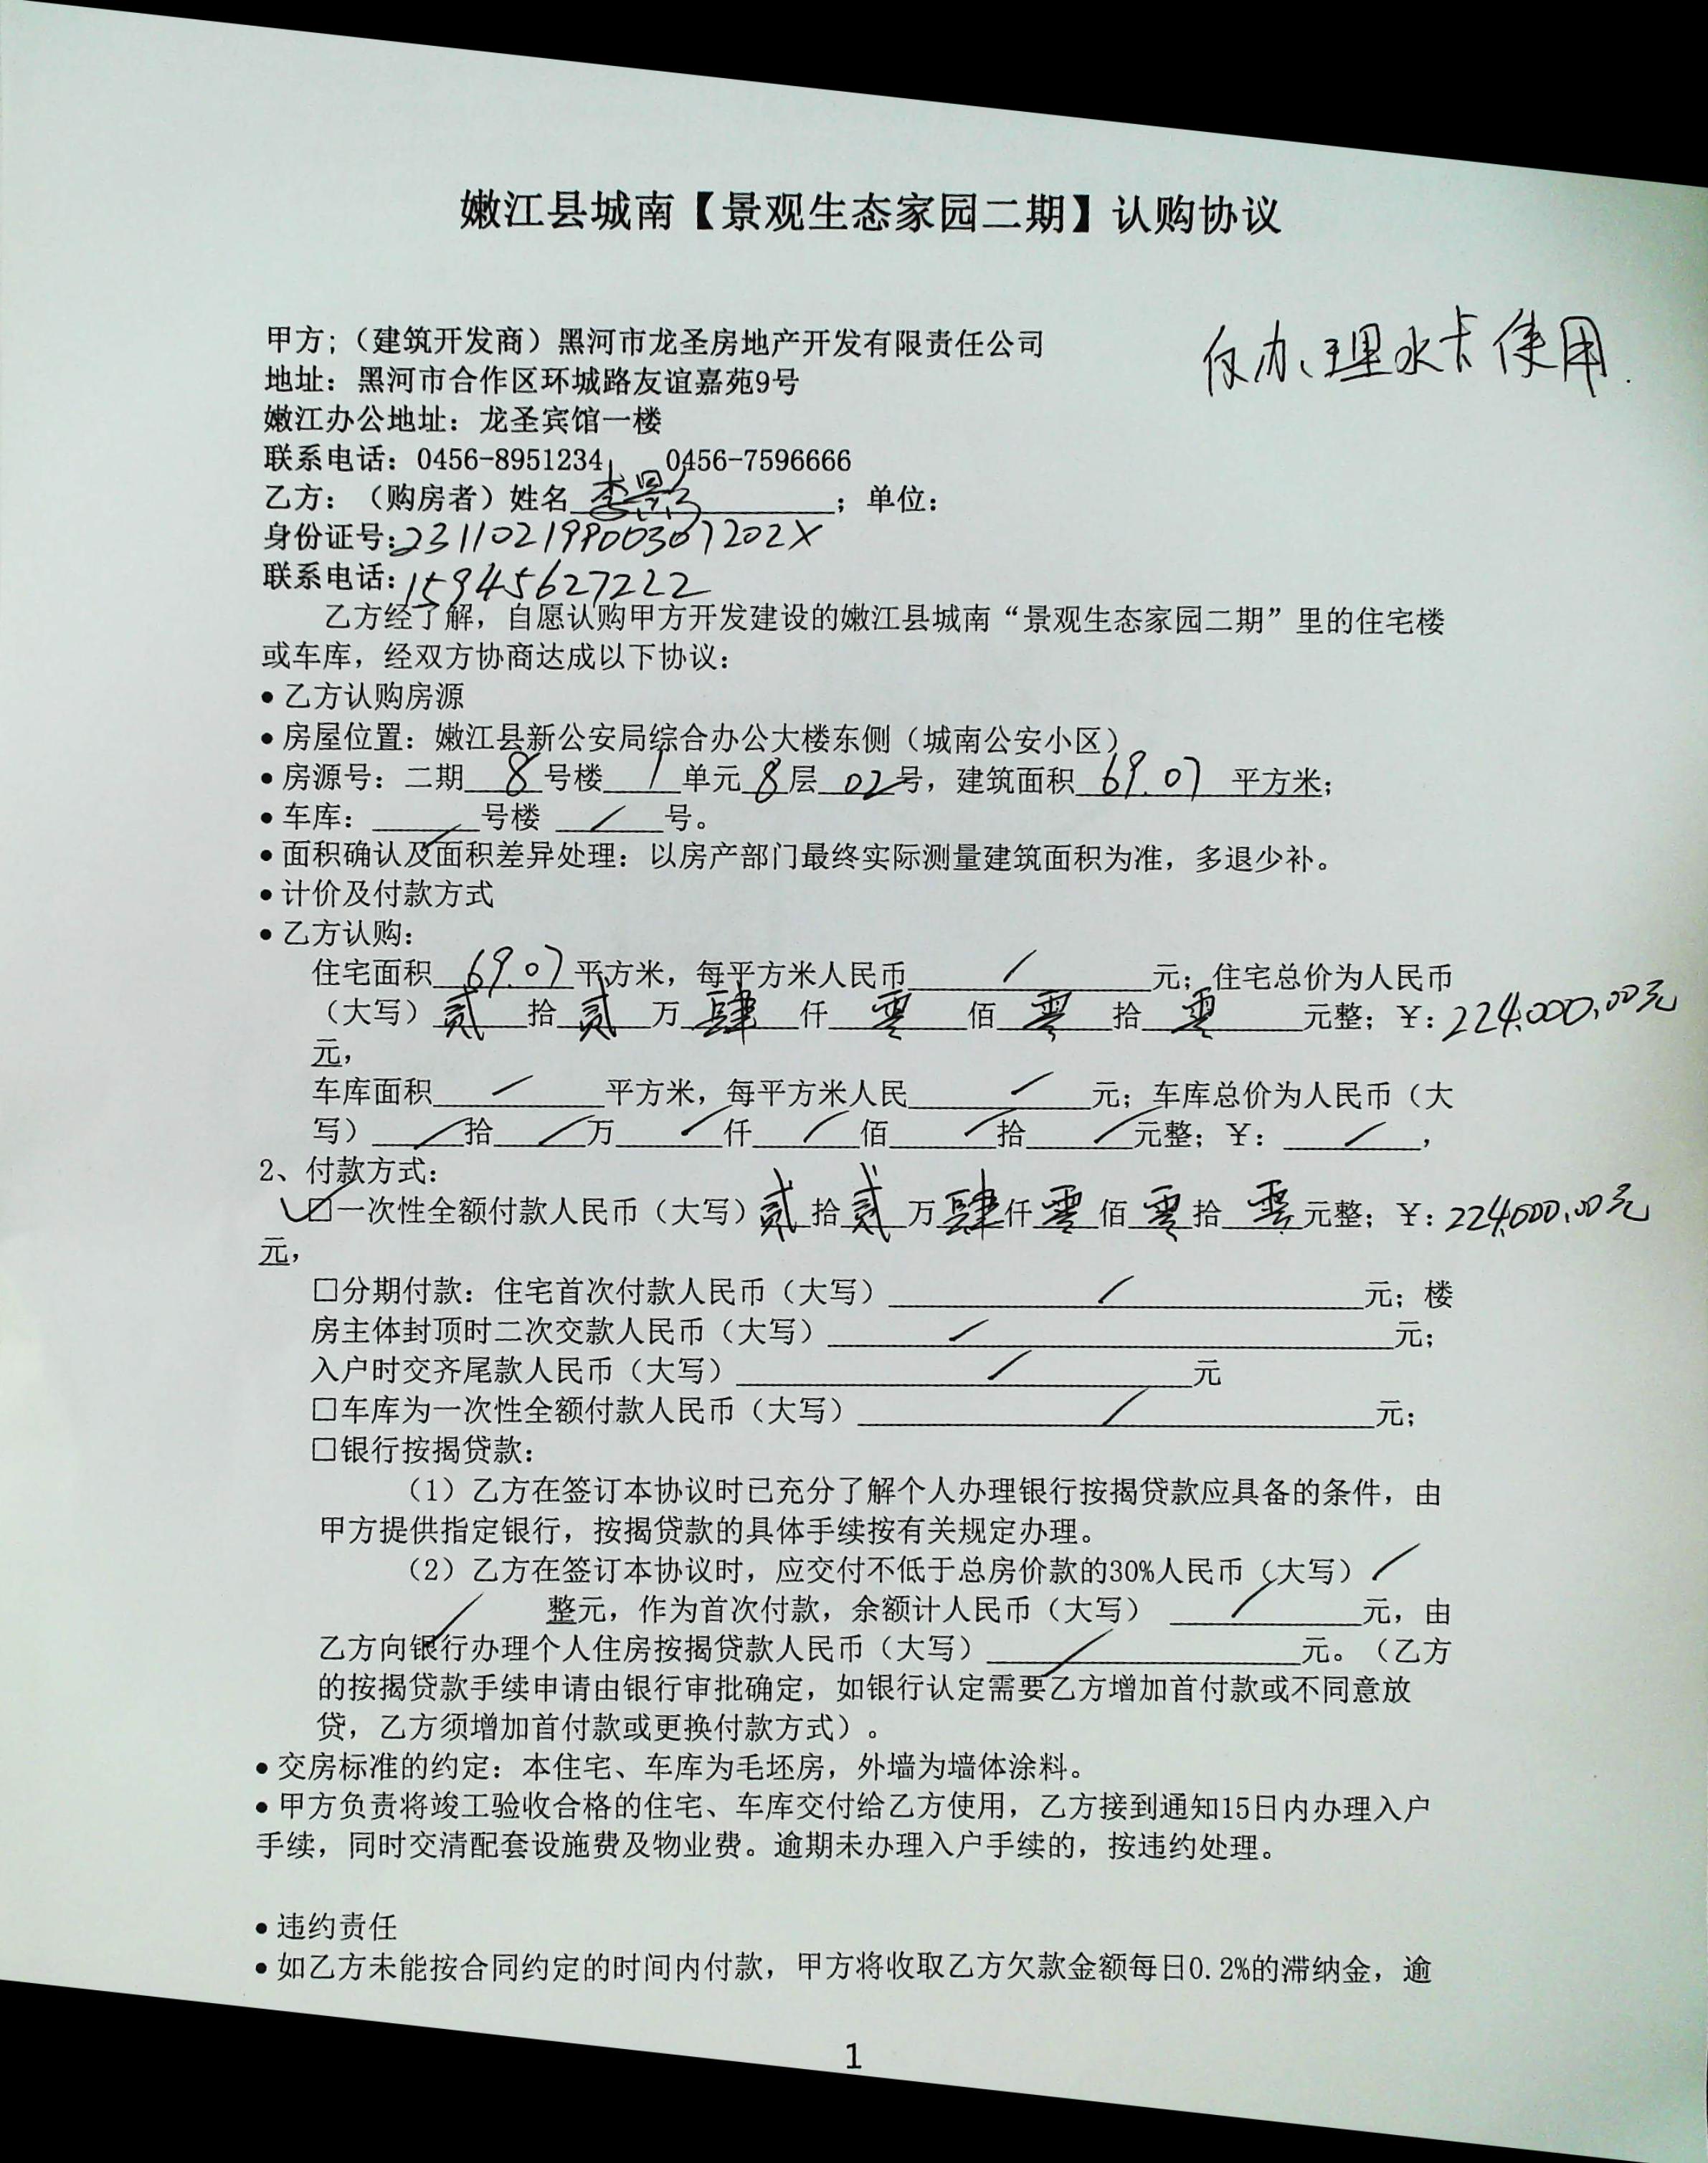 嫩江县城南【景观生态家园二期】认购协议
仅办理水卡使用.
甲方;（建筑开发商）黑河市龙圣房地产开发有限责任公司
地址：黑河市合作区环城路友谊嘉苑9号
嫩江办公地址：龙圣宾馆一楼
联系电话：0456-8951234， 0456-7596666
乙方：（购房者）姓名 李影 ；单位：
身份证号:23110219800307202X
联系电话:15945627222
乙方经了解，自愿认购甲方开发建设的嫩江县城南“景观生态家园二期”里的住宅楼
或车库，经双方协商达成以下协议：
• 乙方认购房源
• 房屋位置：嫩江县新公安局综合办公大楼东侧（城南公安小区）
• 房源号：二期 8 号楼 1 单元 8 层 02 号，建筑面积 69.07 平方米；
• 车库： / 号楼 / 号。
• 面积确认及面积差异处理：以房产部门最终实际测量建筑面积为准，多退少补。
• 计价及付款方式
• 乙方认购：
住宅面积 69.07 平方米，每平方米人民币 / 元；住宅总价为人民币
（大写） 贰 拾 贰 万 肆 仟 零 佰 零 拾 零 元整；￥：224,000.00元
元，
车库面积 / 平方米，每平方米人民 / 元；车库总价为人民币（大
写） / 拾 / 万 / 仟 / 佰 / 拾 / 元整；￥： / ，
2、付款方式：
✓□一次性全额付款人民币（大写） 贰 拾 贰 万 肆 仟 零 佰 零 拾 零 元整；￥：224,000.00元
元，
□分期付款：住宅首次付款人民币（大写） / 元；楼
房主体封顶时二次交款人民币（大写） / 元；
入户时交齐尾款人民币（大写） / 元
□车库为一次性全额付款人民币（大写） / 元；
□银行按揭贷款：
（1）乙方在签订本协议时已充分了解个人办理银行按揭贷款应具备的条件，由
甲方提供指定银行，按揭贷款的具体手续按有关规定办理。
（2）乙方在签订本协议时，应交付不低于总房价款的30%人民币（大写） /
/ 整元，作为首次付款，余额计人民币（大写） / 元，由
乙方向银行办理个人住房按揭贷款人民币（大写） / 元。（乙方
的按揭贷款手续申请由银行审批确定，如银行认定需要乙方增加首付款或不同意放
贷，乙方须增加首付款或更换付款方式）。
• 交房标准的约定：本住宅、车库为毛坯房，外墙为墙体涂料。
• 甲方负责将竣工验收合格的住宅、车库交付给乙方使用，乙方接到通知15日内办理入户
手续，同时交清配套设施费及物业费。逾期未办理入户手续的，按违约处理。
• 违约责任
• 如乙方未能按合同约定的时间内付款，甲方将收取乙方欠款金额每日0.2%的滞纳金，逾
1